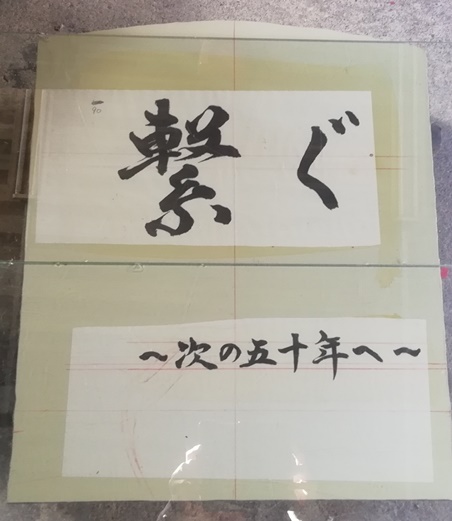 繋ぐ
～次の五十年へ～